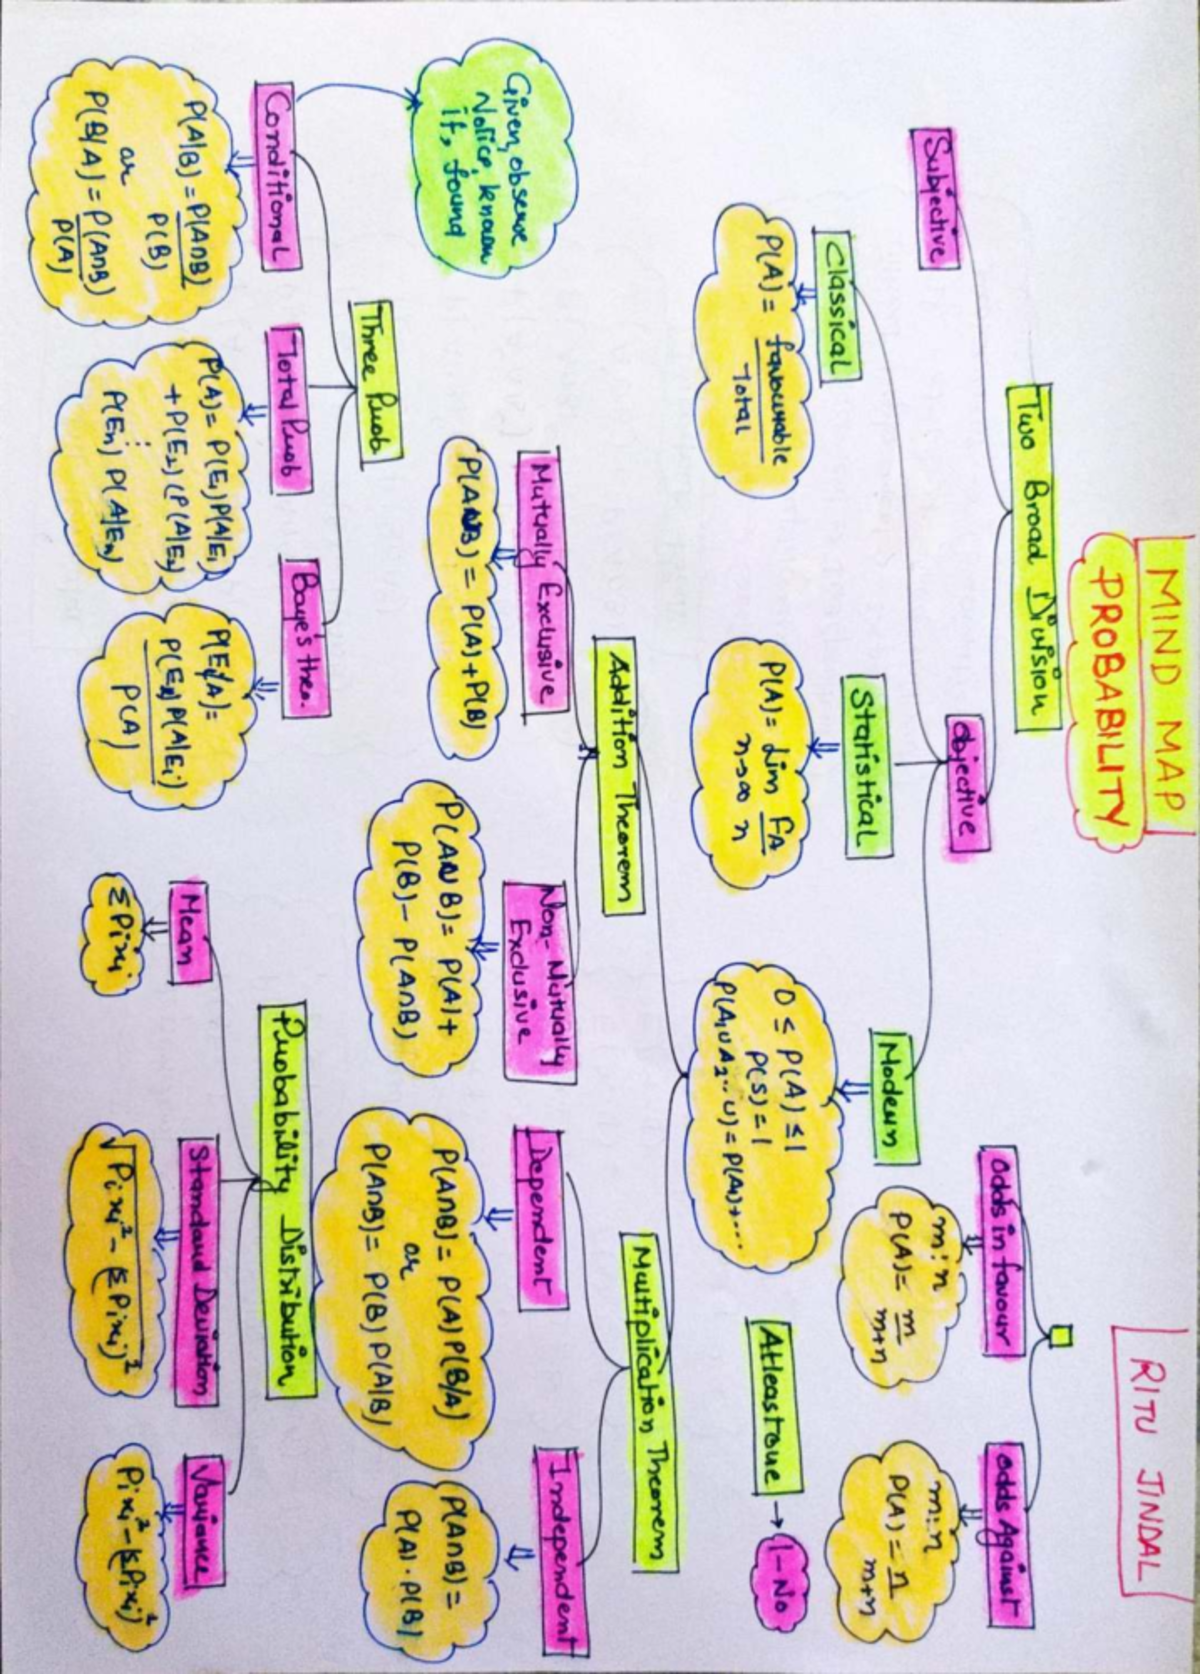 MIND MAP
PROBABILITY
RITU JINDAL
Two Broad Division
Subjective
Objective
Classical
P(A) = favourable
Total
Statistical
P(A) = Lim FA
n→∞ n
Modern
0 ≤ P(A) ≤ 1
P(S) = 1
P(A1 ∪ A2 .. ∪) = P(A1) + ....
Odds in favour
m:n
P(A) = m
m+n
Odds Against
m:n
P(A) = n
m+n
Atleast one → 1 - No
Addition Theorem
Mutually Exclusive
P(A∪B) = P(A) + P(B)
Non-Mutually
Exclusive
P(A∪B) = P(A) +
P(B) - P(A∩B)
Multiplication Theorem
Dependent
P(A∩B) = P(A) P(B/A)
or
P(A∩B) = P(B) P(A|B)
Independent
P(A∩B) =
P(A) . P(B)
Given, observe
Notice, known
if, found
Three Prob
Conditional
P(A|B) = P(A∩B)
P(B)
or
P(B/A) = P(A∩B)
P(A)
Total Prob
P(A) = P(E1) P(A|E1)
+ P(E2) (P(A|E2)
⋮
P(En) P(A|En)
Baye's theo.
P(Ei/A) =
P(Ei) P(A|Ei)
P(A)
Probability Distribution
Mean
ΣPixi
Standard Deviation
√Pixi² - (ΣPixi)²
Variance
Pixi² - (ΣPixi)²